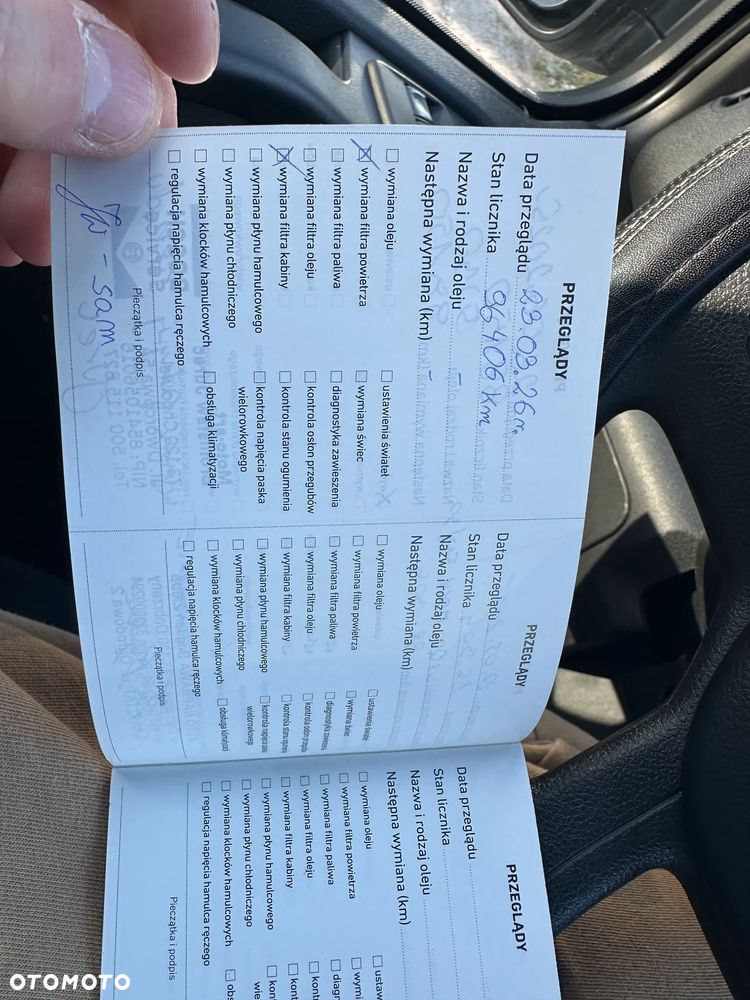 PRZEGLĄDY
Data przeglądu 23.03.26r.
Stan licznika 96406 Km
Nazwa i rodzaj oleju —
Następna wymiana (km) —
☐ wymiana oleju ☐ ustawienia świateł
☒ wymiana filtra powietrza ☐ wymiana świec
☐ wymiana filtra paliwa ☐ diagnostyka zawieszenia
☐ wymiana filtra oleju ☐ kontrola osłon przegubów
☒ wymiana filtra kabiny ☐ kontrola stanu ogumienia
☐ wymiana płynu hamulcowego ☐ kontrola napięcia paska
☐ wymiana płynu chłodniczego wielorowkowego
☐ wymiana klocków hamulcowych ☐ obsługa klimatyzacji
☐ regulacja napięcia hamulca ręcznego
- sam
Pieczątka i podpis
PRZEGLĄDY
Data przeglądu
Stan licznika
Nazwa i rodzaj oleju
Następna wymiana (km)
☐ wymiana oleju ☐ ustawienia świateł
☐ wymiana filtra powietrza ☐ wymiana świec
☐ wymiana filtra paliwa ☐ diagnostyka zawieszenia
☐ wymiana filtra oleju ☐ kontrola osłon przegubów
☐ wymiana filtra kabiny ☐ kontrola stanu ogumienia
☐ wymiana płynu hamulcowego ☐ kontrola napięcia paska
☐ wymiana płynu chłodniczego wielorowkowego
☐ wymiana klocków hamulcowych ☐ obsługa klimatyzacji
☐ regulacja napięcia hamulca ręcznego
Pieczątka i podpis
PRZEGLĄDY
Data przeglądu
Stan licznika
Nazwa i rodzaj oleju
Następna wymiana (km)
☐ wymiana oleju ☐ ustaw
☐ wymiana filtra powietrza ☐ wymi
☐ wymiana filtra paliwa ☐ diagn
☐ wymiana filtra oleju ☐ kont
☐ wymiana filtra kabiny ☐ kont
☐ wymiana płynu hamulcowego ☐ kon
☐ wymiana płynu chłodniczego wie
☐ wymiana klocków hamulcowych ☐ obs
☐ regulacja napięcia hamulca ręcznego
Pieczątka i podpis
OTOMOTO